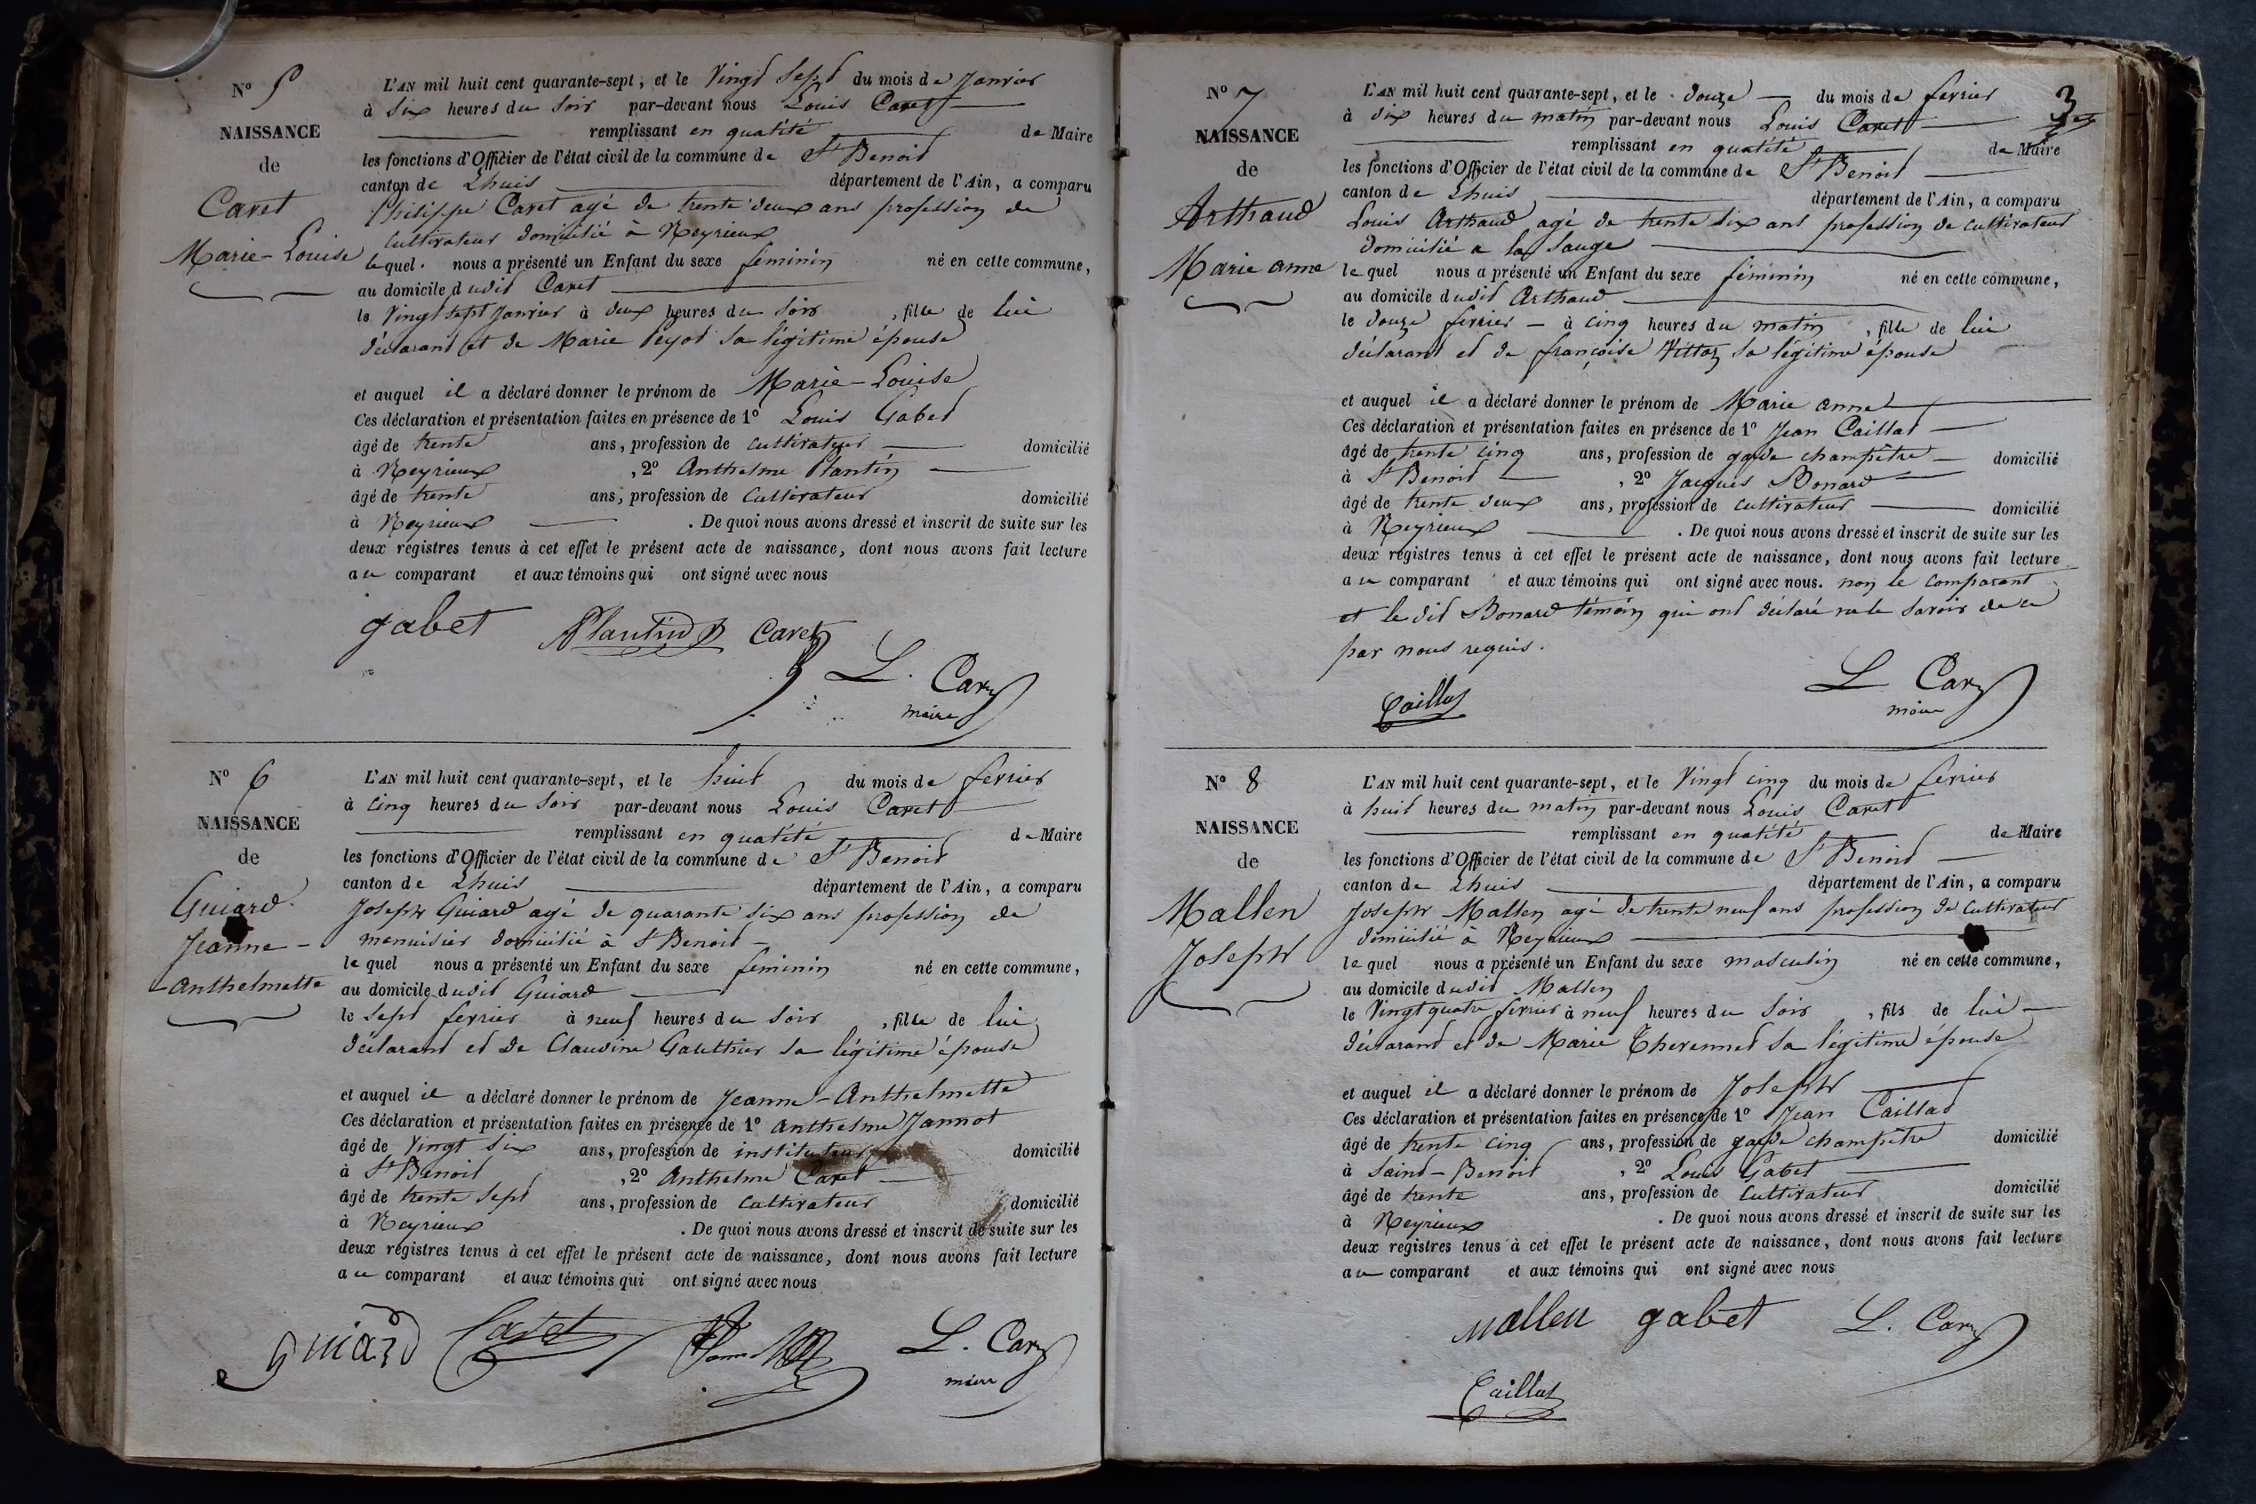 N° 5
NAISSANCE
de
Caret
Marie-Louise
L'AN mil huit cent quarante-sept, et le Vingt Sept du mois de Janvier
à Six heures du Soir par-devant nous Louis Caret
remplissant en qualité de Maire
les fonctions d'Officier de l'état civil de la commune de St Benoit
canton de Lhuis département de l'Ain, a comparu
Philippe Caret agé de trente deux ans profession de
Cultivateur domicilié à Neyrieux
lequel nous a présenté un Enfant du sexe féminin né en cette commune,
au domicile dudit Caret
le Vingt sept Janvier à deux heures du Soir, fille de lui
déclarant et de Marie Peyot sa légitime épouse
et auquel il a déclaré donner le prénom de Marie-Louise
Ces déclaration et présentation faites en présence de 1° Louis Gabet
âgé de trente ans, profession de Cultivateur domicilié
à Neyrieux, 2° Anthelme Plantin
âgé de trente ans, profession de Cultivateur domicilié
à Neyrieux. De quoi nous avons dressé et inscrit de suite sur les
deux registres tenus à cet effet le présent acte de naissance, dont nous avons fait lecture
au comparant et aux témoins qui ont signé avec nous
gabet Plantin Caret
L. Caret
maire
N° 6
NAISSANCE
de
Guiard
Jeanne-
Anthelmette
L'AN mil huit cent quarante-sept, et le huit du mois de fevrier
à cinq heures du Soir par-devant nous Louis Caret
remplissant en qualité de Maire
les fonctions d'Officier de l'état civil de la commune de St Benoit
canton de Lhuis département de l'Ain, a comparu
Joseph Guiard agé de quarante six ans profession de
menuisier domicilié à St Benoit
lequel nous a présenté un Enfant du sexe féminin né en cette commune,
au domicile dudit Guiard
le Sept fevrier à neuf heures du Soir, fille de lui
déclarant et de Claudine Gauthier sa légitime épouse
et auquel il a déclaré donner le prénom de Jeanne-Anthelmette
Ces déclaration et présentation faites en présence de 1° Anthelme Jannot
âgé de Vingt Six ans, profession de instituteur domicilié
à St Benoit, 2° Anthelme Caret
âgé de trente Sept ans, profession de Cultivateur domicilié
à Neyrieux. De quoi nous avons dressé et inscrit de suite sur les
deux registres tenus à cet effet le présent acte de naissance, dont nous avons fait lecture
au comparant et aux témoins qui ont signé avec nous
guiard Caret L. Caret
maire
3
N° 7
NAISSANCE
de
Arthaud
Marie anne
L'AN mil huit cent quarante-sept, et le douze du mois de fevrier
à six heures du matin par-devant nous Louis Caret
remplissant en qualité de Maire
les fonctions d'Officier de l'état civil de la commune de St Benoit
canton de Lhuis département de l'Ain, a comparu
Louis Arthaud agé de trente six ans profession de cultivateur
domicilié a la Sauge
lequel nous a présenté un Enfant du sexe féminin né en cette commune,
au domicile dudit Arthaud
le douze fevrier à cinq heures du matin, fille de lui
déclarant et de françoise Vittoz sa légitime épouse
et auquel il a déclaré donner le prénom de Marie anne
Ces déclaration et présentation faites en présence de 1° Jean Caillat
âgé de trente cinq ans, profession de garde champêtre domicilié
à St Benoit, 2° Jacques Bonard
âgé de trente deux ans, profession de cultivateur domicilié
à Neyrieux. De quoi nous avons dressé et inscrit de suite sur les
deux registres tenus à cet effet le présent acte de naissance, dont nous avons fait lecture
au comparant et aux témoins qui ont signé avec nous. non le comparant
et le dit Bonard témoin qui ont déclaré ne le savoir de ce
par nous requis.
Caillat
L Caret
maire
N° 8
NAISSANCE
de
Mallen
Joseph
L'AN mil huit cent quarante-sept, et le Vingt cinq du mois de fevrier
à huit heures du matin par-devant nous Louis Caret
remplissant en qualité de Maire
les fonctions d'Officier de l'état civil de la commune de St Benoit
canton de Lhuis département de l'Ain, a comparu
Joseph Mallen agé de trente neuf ans profession de Cultivateur
domicilié à Neyrieux
lequel nous a présenté un Enfant du sexe masculin né en cette commune,
au domicile dudit Mallen
le Vingt quatre fevrier à neuf heures du Soir, fils de lui
déclarant et de Marie Thevennet sa légitime épouse
et auquel il a déclaré donner le prénom de Joseph
Ces déclaration et présentation faites en présence de 1° Jean Caillat
âgé de trente cinq ans, profession de garde champêtre domicilié
à Saint-Benoit, 2° Louis Gabet
âgé de trente ans, profession de Cultivateur domicilié
à Neyrieux. De quoi nous avons dressé et inscrit de suite sur les
deux registres tenus à cet effet le présent acte de naissance, dont nous avons fait lecture
au comparant et aux témoins qui ont signé avec nous
mallen gabet L. Caret
Caillat